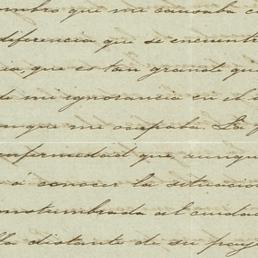 ombro que me causaba e
diferencia que se encuentr
ia, que es tan grande que
de mi ignorancia en el
en que me ocupaba. La f
enfermedad que, aunque
rá conocer la situacion
costumbrada al cuidad
lla distante de su pays